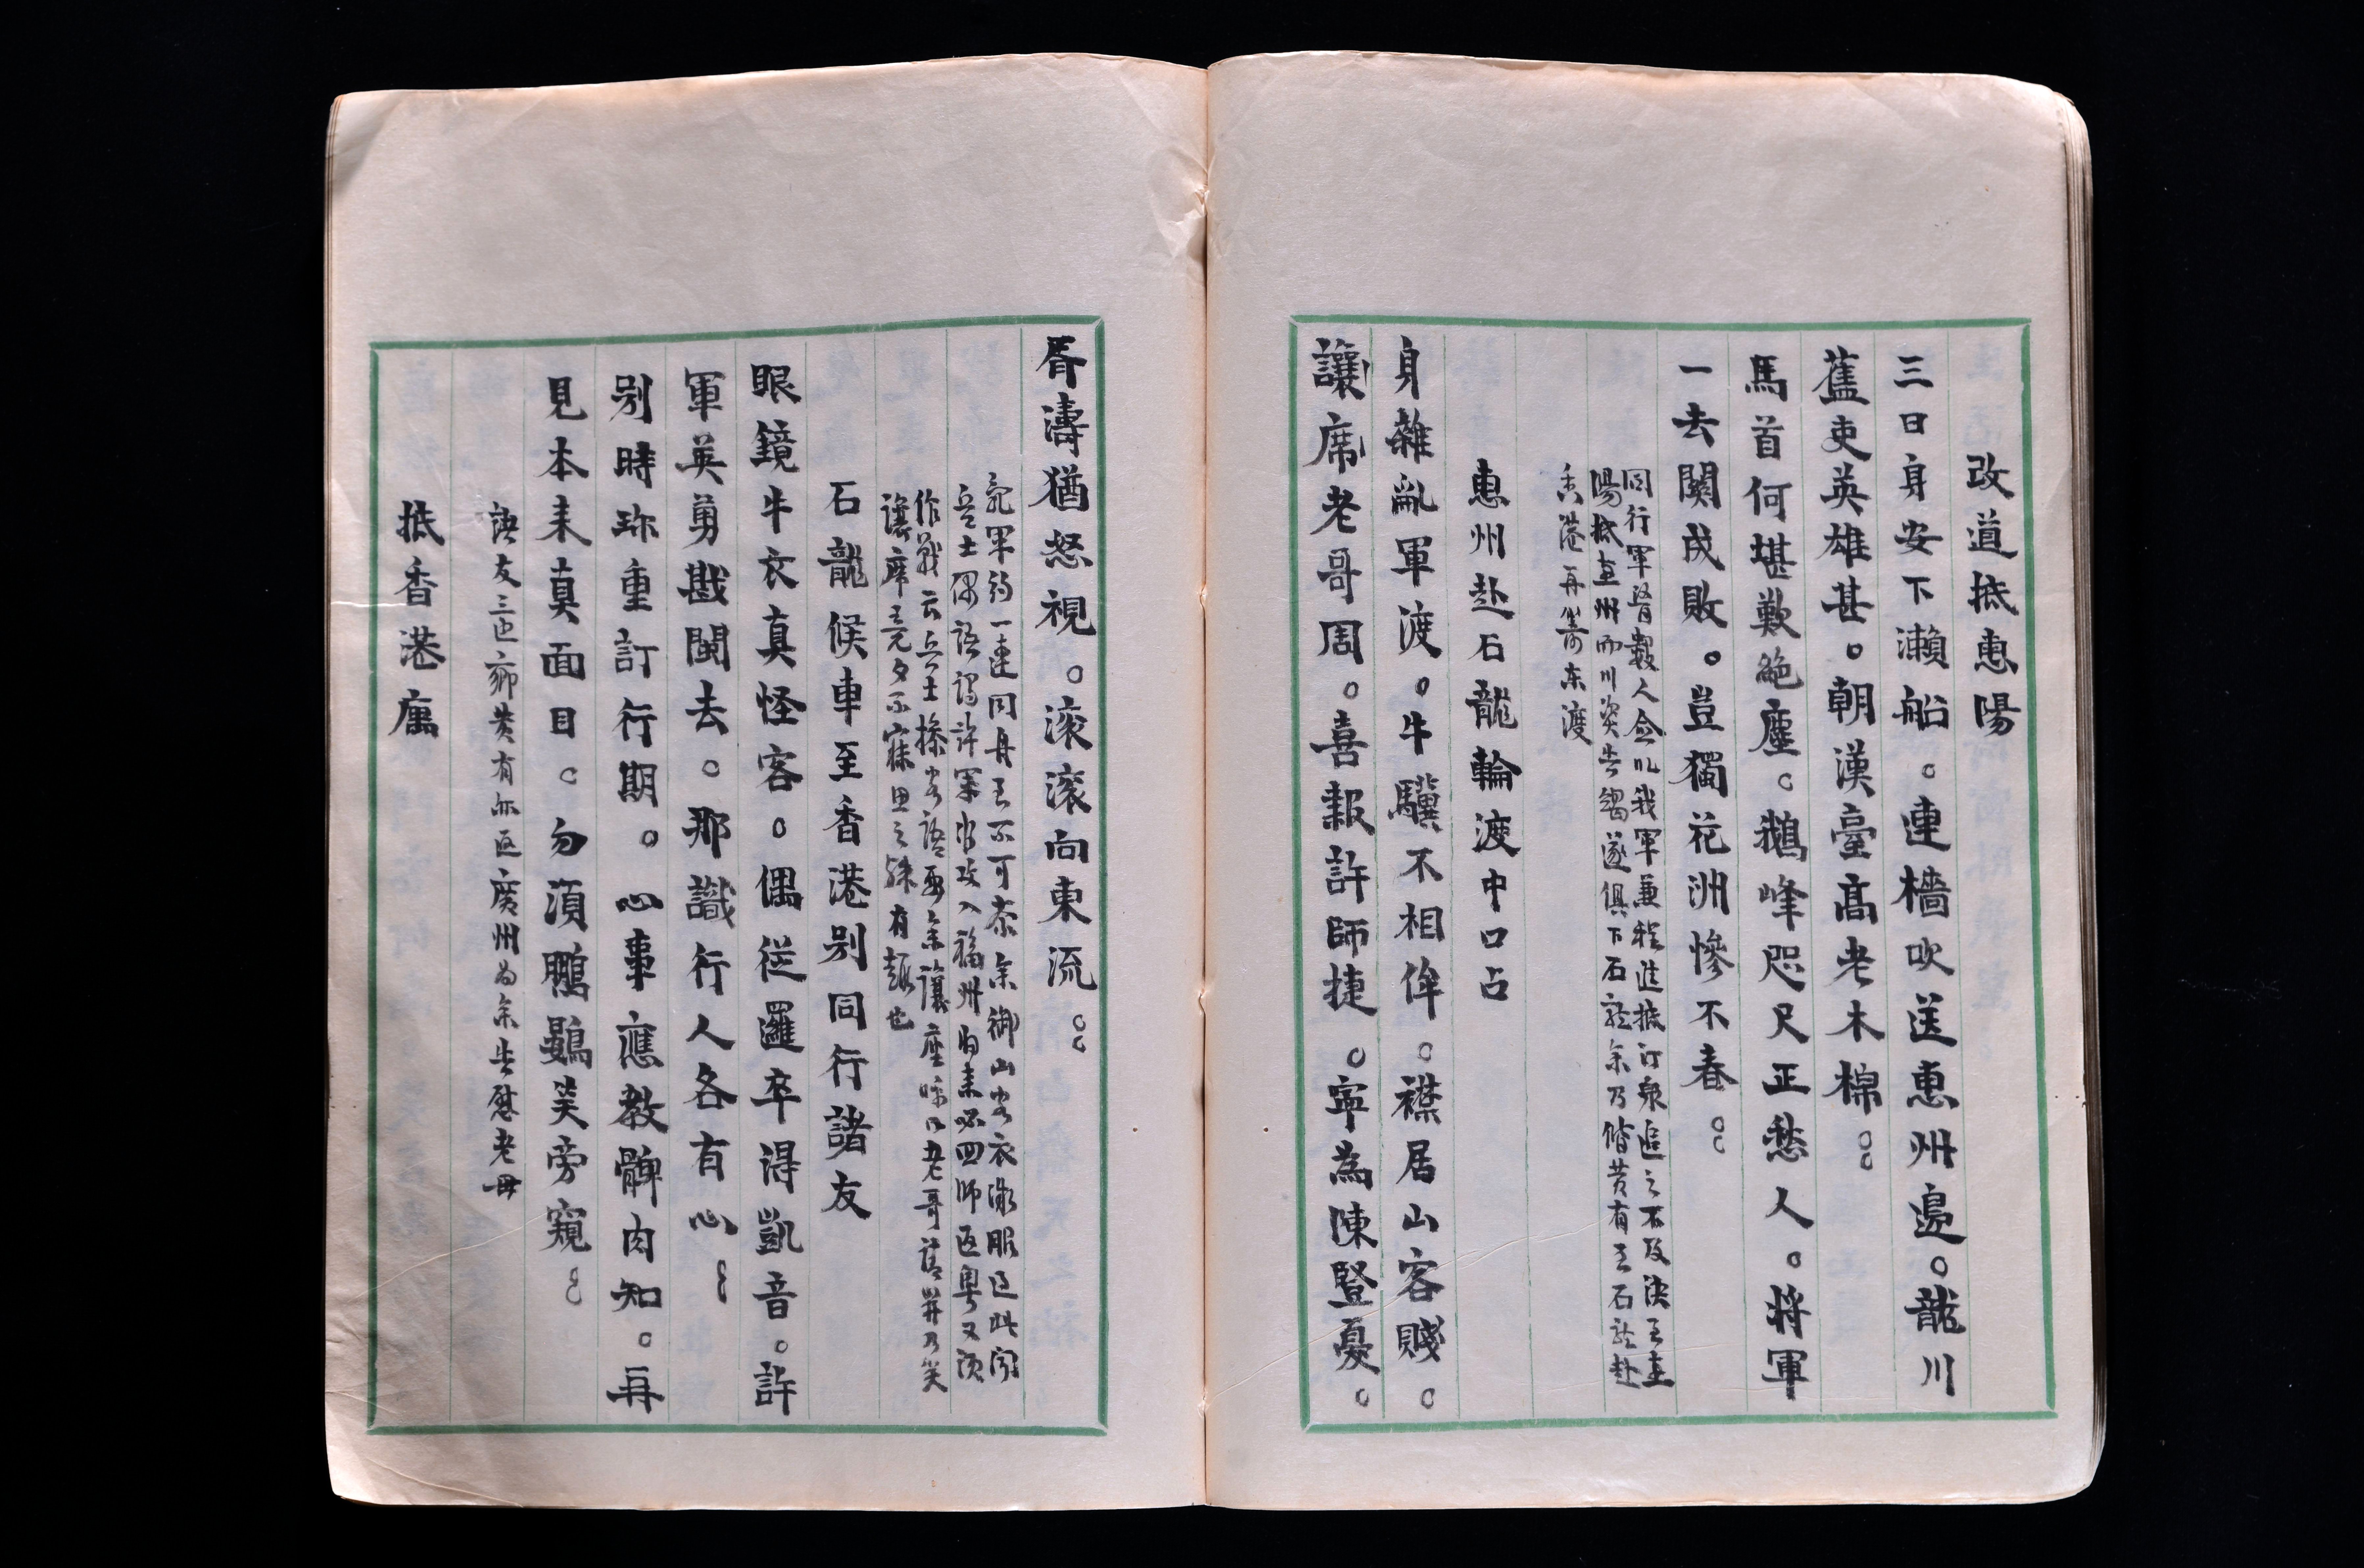 改道抵惠陽
三日身安下瀨船。連檣吹送惠州邊。龍川
舊吏英雄甚。朝漢臺高老木棉。
馬首何堪歎絕塵。鵝峰咫尺正愁人。將軍
一去關成敗。豈獨花洲慘不春。
同行軍督數人僉以我軍兼程進據汀泉追之不及決至惠
陽抵惠州而川資告竭遂俱下石龍余乃偕黃有至石龍赴
香港再籌東渡
惠州赴石龍輪渡中口占
身雜亂軍渡。牛驥不相侔。襟居山客賤。
讓席老哥周。喜報許師捷。寧為陳豎憂。
胥濤猶怒視。滾滾向東流。
亂軍約一連同舟至不可奈余御山客衣漱服
兵士偶語謂許軍當攻入福州為患必回師返粵又須
作戰云兵士操客語要余讓座呼曰老哥
讓席竟夕不寐思之殊有趣也
石龍候車至香港別同行諸友
眼鏡牛衣真怪客。偶從邏卒得凱音。許
軍英勇戡閩去。那識行人各有心。
別時珍重訂行期。心事應教髀肉知。再
見本來真面目。勿須鵬鷃笑旁窺。
諸友三返鄉黃有亦返廣州為余告慰老母
抵香港寓